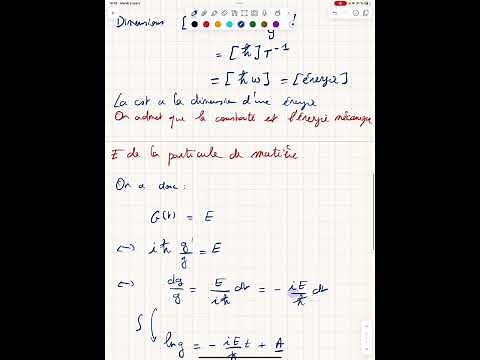 Dimensions [
= [ħ] T⁻¹
= [ħω] = [énergie]
La cst a la dimension d'une énergie
On admet que la constante est l'énergie mécanique
E de la particule de matière
On a donc :
G(t) = E
⟺ iħ g'/g = E
⟺ dg/g = E/iħ dt = - iE/ħ dt
∫ ln g = - iE/ħ t + A